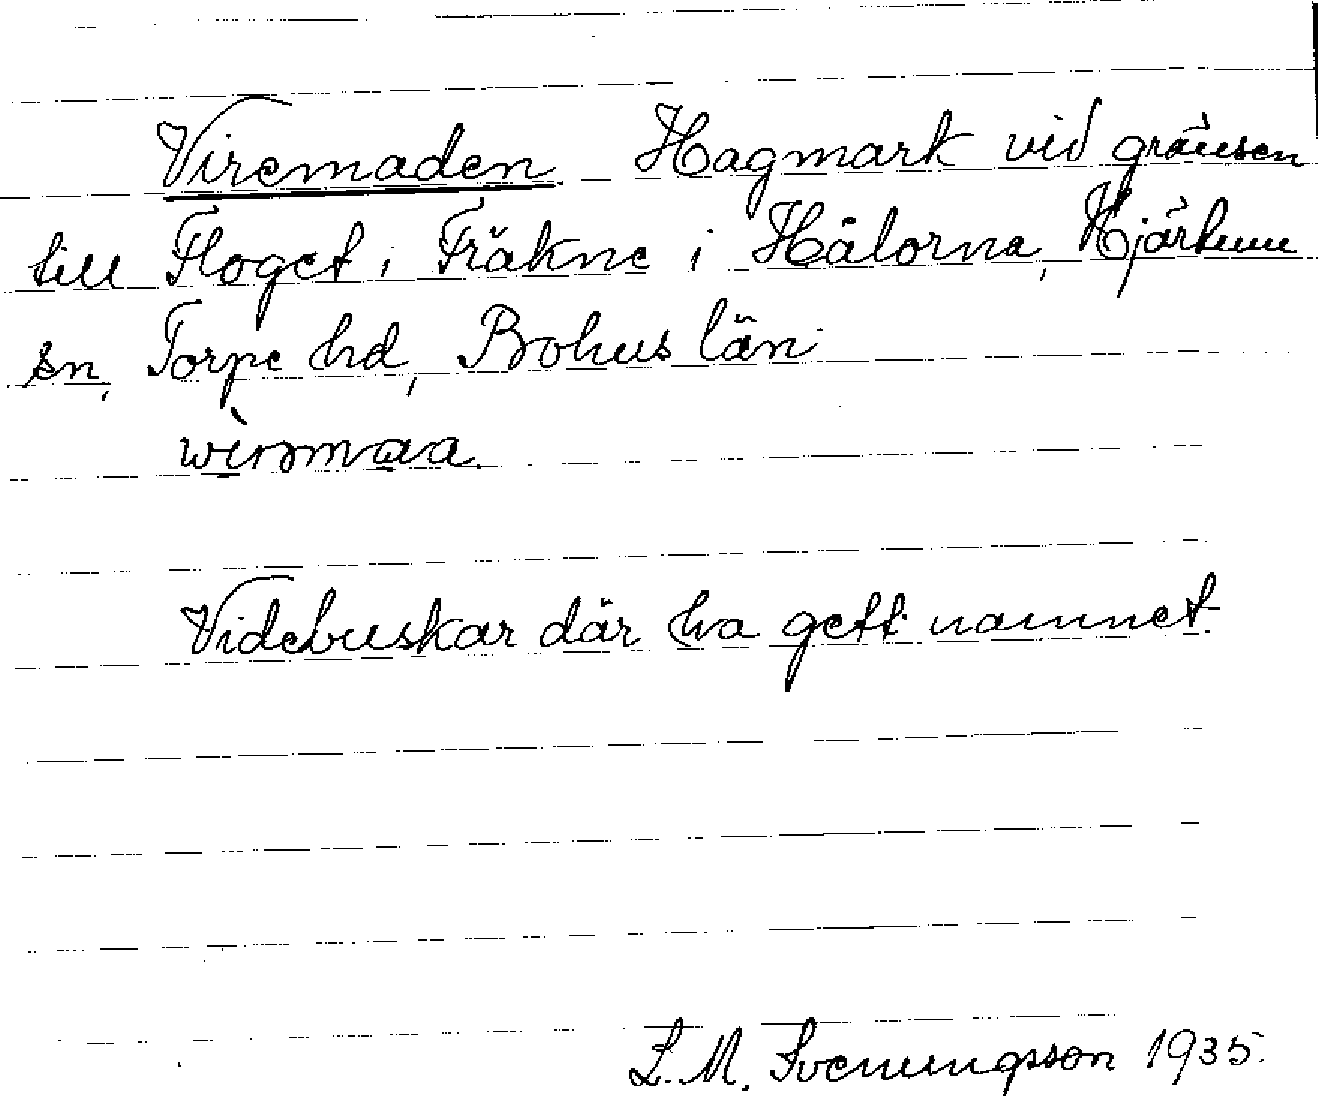 Viremaden Hagmark vid gränsen
till Floget i Fräkne i Hålorna, Hjärtum
sn, Torpe hd, Bohus län
Videbuskar där ha gett namnet
L. M. Svenungsson 1935.